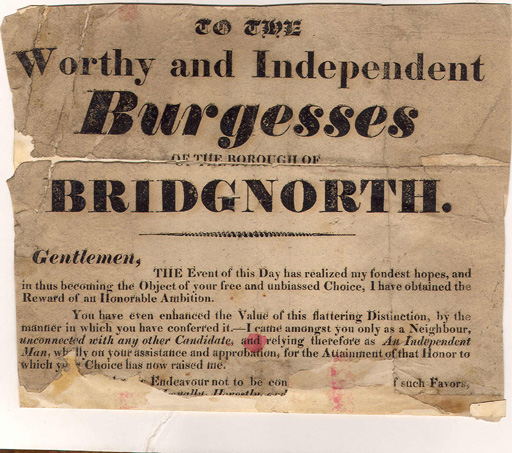 TO THE
Worthy and Independent
Burgesses
OF THE BOROUGH OF
BRIDGNORTH.
Gentlemen,
THE Event of this Day has realized my fondest hopes, and
in thus becoming the Object of your free and unbiassed Choice, I have obtained the
Reward of an Honorable Ambition.
You have even enhanced the Value of this flattering Distinction, by the
manner in which you have conferred it.—I came amongst you only as a Neighbour,
unconnected with any other Candidate, and relying therefore as An Independent
Man, wholly on your assistance and approbation, for the Attainment of that Honor to
which your Choice has now raised me.
Endeavour not to be con f such Favors,
Loyally, Honestly, and